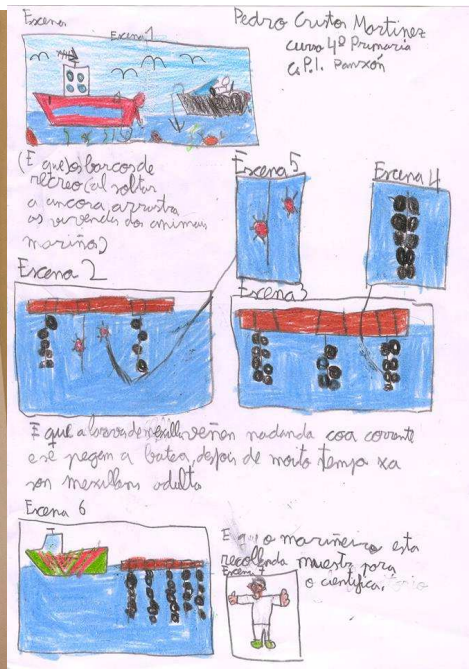 Escena
Escena 1
Pedro Custor Martinez
curso 4º Primaria
C.P.I. Panxón
(E que os barcos de
recreo (al soltar
a ancora, arrastra
as vivendas dos animais
mariños)
Escena 5
Escena 4
Escena 2
Escena 3
E que a larva de mexillon veñen nadando coa corrente
e se pegam a batea, depois de moito tempo xa
son mexillons adulto
Escena 6
E que o mariñeiro esta
recollendo muestra para
o cientifica.
Escena 7